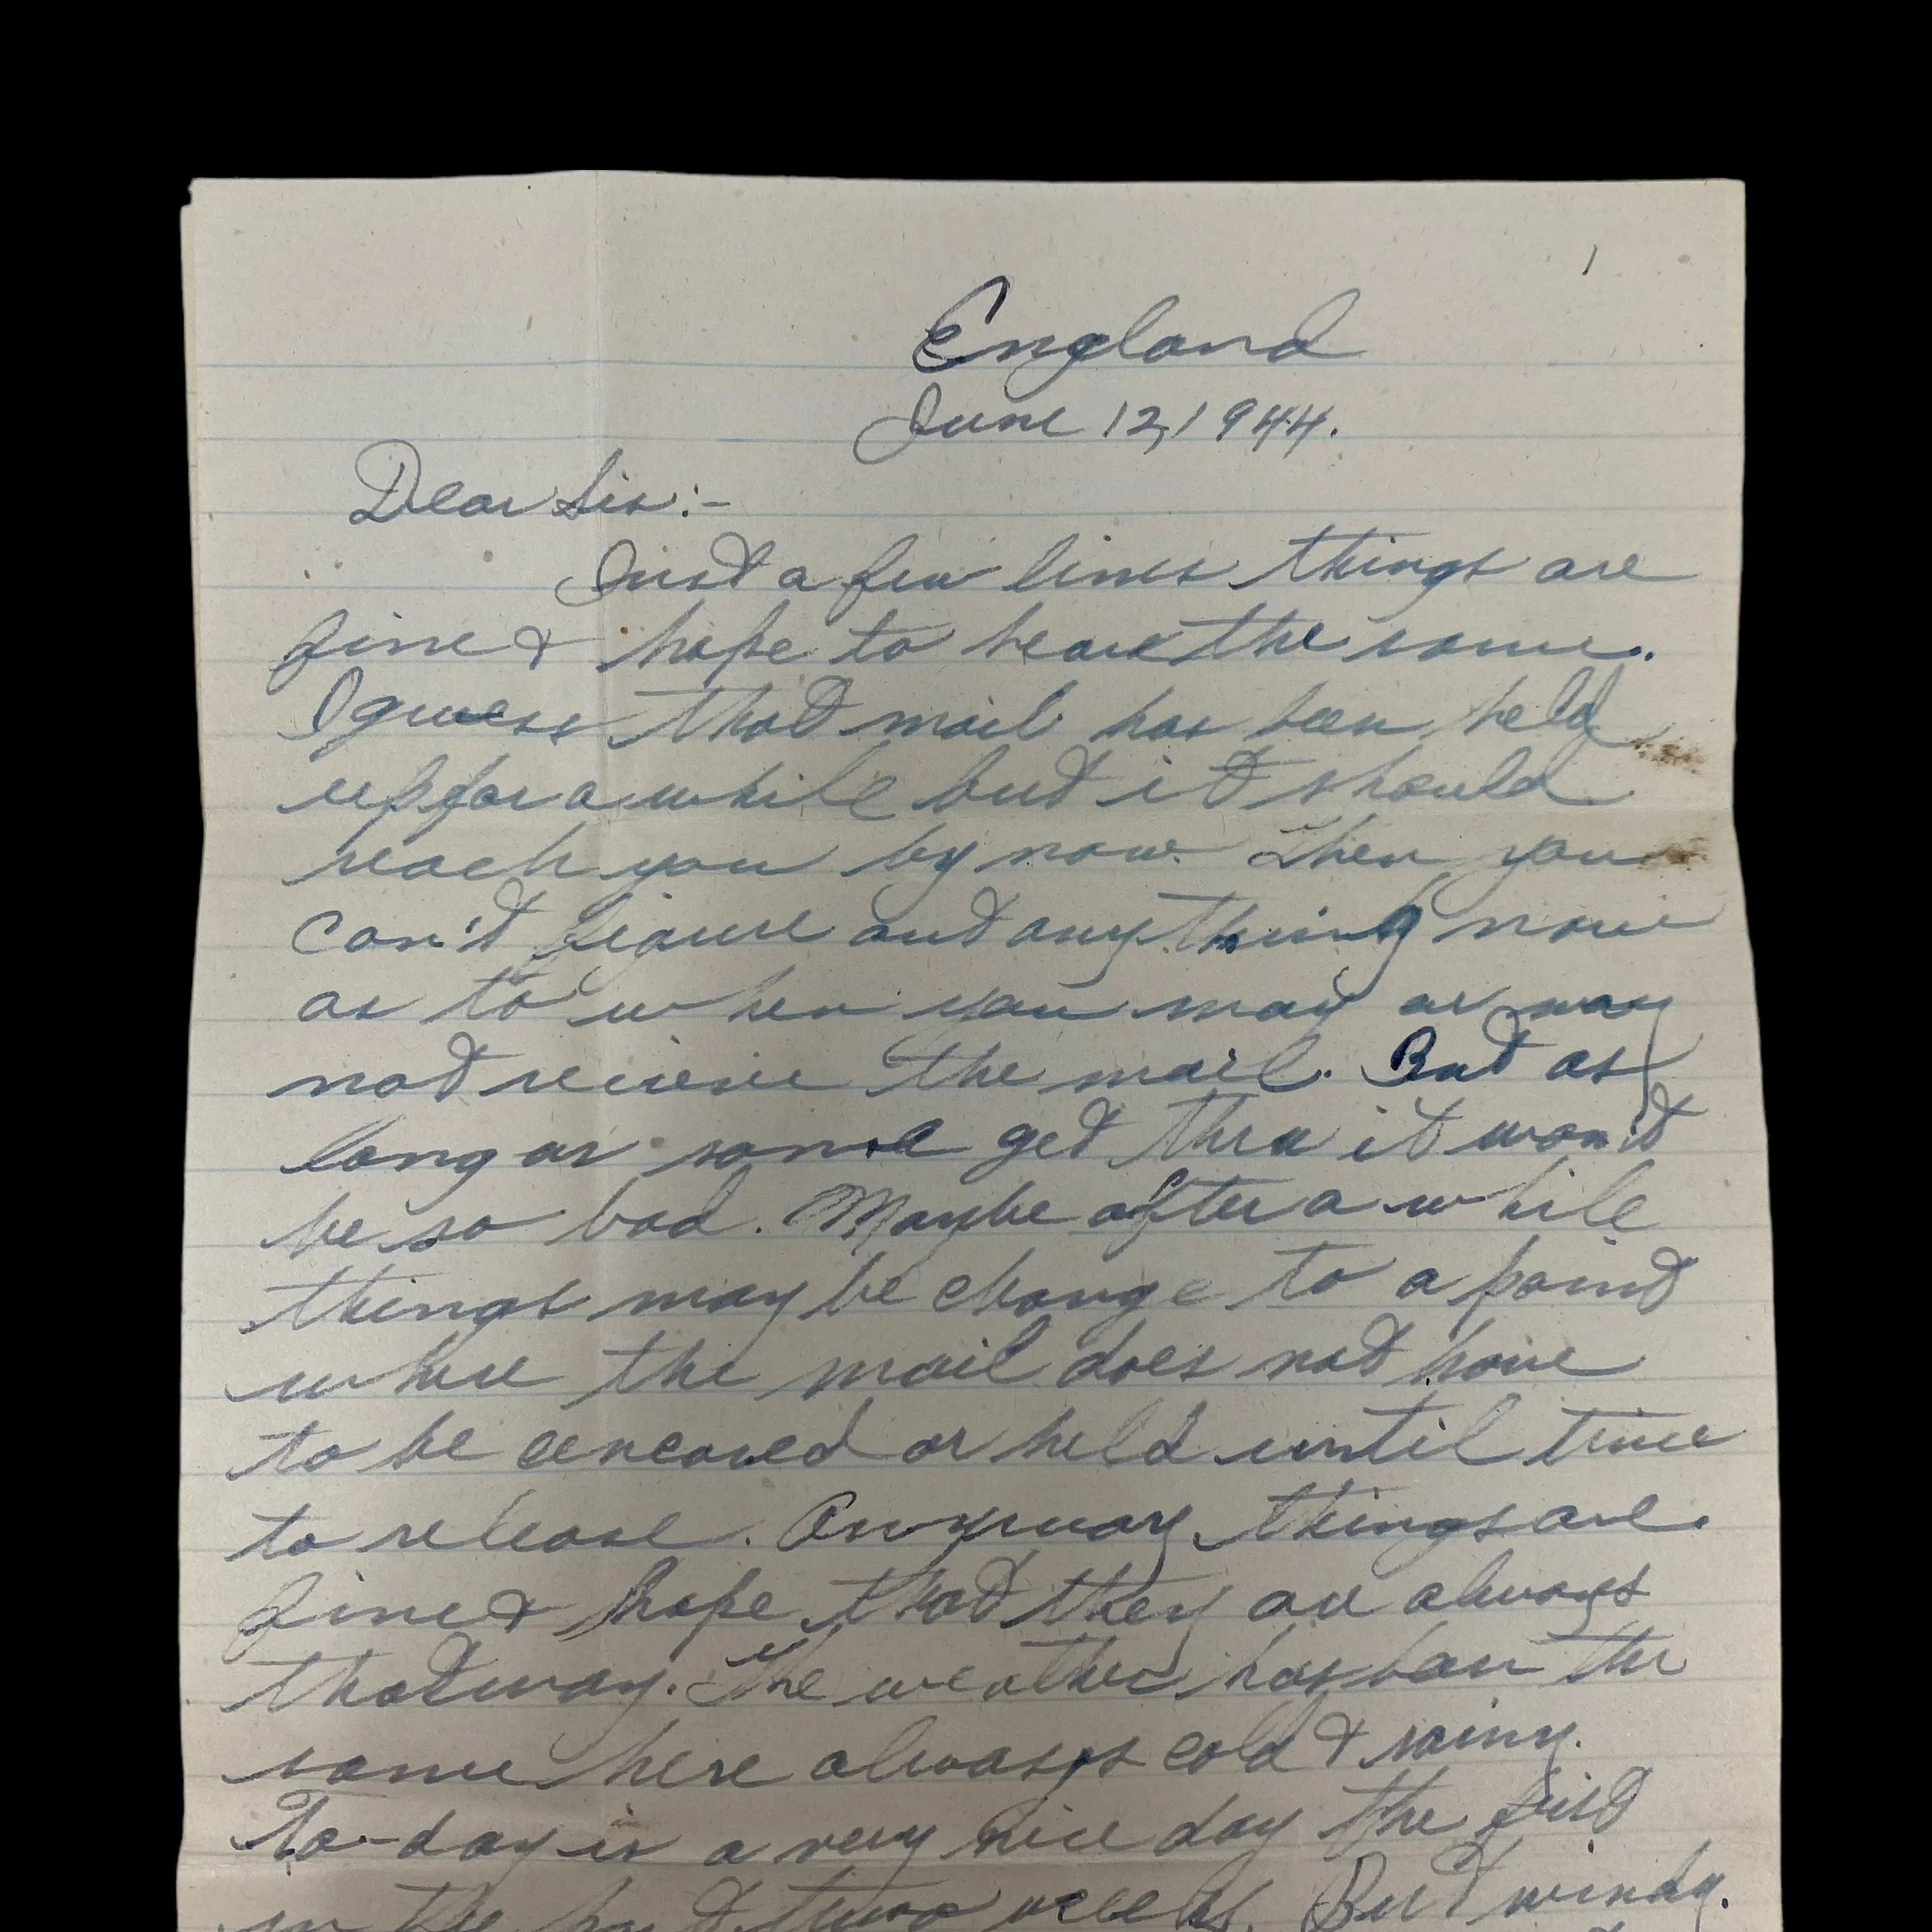 1
England
June 12, 1944.
Dear Sis:-
Just a few lines things are
fine & hope to hear the same.
I guess that mail has been held
up for a while but it should
reach you by now. Then you
can't figure out anything now
as to when you may or may
not recieve the mail. But as
long as some get thru it won't
be so bad. Maybe after a while
things may be change to a point
where the mail does not have
to be cencored or held until time
to release. Anyway things are
fine & hope that they are always
that way. The weather has been the
same here always cold & rainy.
To-day is a very nice day the first
in the two weeks. But windy.